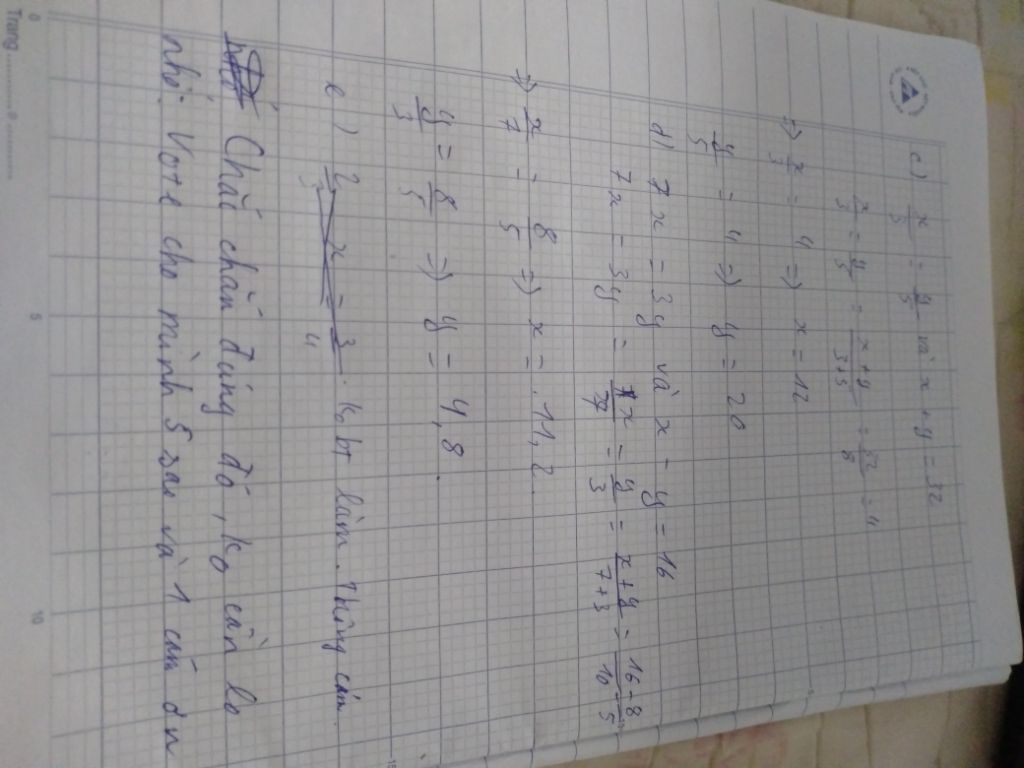 c) x/3 = y/5 và x + y = 32
x/3 = y/5 = x+y/3+5 = 32/8 = 4
=> x/3 = 4 => x = 12
y/5 = 4 => y = 20
d) 7x = 3y và x - y = 16
7x = 3y = x/7 = y/3 = x+y/7+3 = 16/10 = 8/5
=> x/7 = 8/5 => x = 11,2
y/3 = 8/5 => y = 4,8
e) ko bt làm. Thông cảm.
Chắc chắn đúng đó, ko cần lo
nhớ: Vote cho mình 5 sao và 1 cảm ơn
Trang
0
5
10
15